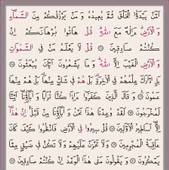 أَمَّن يَبْدَؤُا۟ ٱلْخَلْقَ ثُمَّ يُعِيدُهُۥ وَمَن يَرْزُقُكُم مِّنَ ٱلسَّمَآءِ
وَٱلْأَرْضِ أَءِلَٰهٌ مَّعَ ٱللَّهِ قُلْ هَاتُوا۟ بُرْهَٰنَكُمْ إِن
كُنتُمْ صَٰدِقِينَ ۝ قُل لَّا يَعْلَمُ مَن فِى ٱلسَّمَٰوَٰتِ
وَٱلْأَرْضِ ٱلْغَيْبَ إِلَّا ٱللَّهُ وَمَا يَشْعُرُونَ أَيَّانَ يُبْعَثُونَ
۝ بَلِ ٱدَّٰرَكَ عِلْمُهُمْ فِى ٱلْءَاخِرَةِ بَلْ هُمْ فِى شَكٍّ مِّنْهَا بَلْ هُم مِّنْهَا
عَمُونَ ۝ وَقَالَ ٱلَّذِينَ كَفَرُوٓا۟ أَءِذَا كُنَّا تُرَٰبًا وَءَابَآؤُنَآ أَئِنَّا
لَمُخْرَجُونَ ۝ لَقَدْ وُعِدْنَا هَٰذَا نَحْنُ وَءَابَآؤُنَا مِن قَبْلُ إِنْ هَٰذَآ
إِلَّآ أَسَٰطِيرُ ٱلْأَوَّلِينَ ۝ قُلْ سِيرُوا۟ فِى ٱلْأَرْضِ فَٱنظُرُوا۟ كَيْفَ كَانَ
عَٰقِبَةُ ٱلْمُجْرِمِينَ ۝ وَلَا تَحْزَنْ عَلَيْهِمْ وَلَا تَكُن فِى ضَيْقٍ مِّمَّا
يَمْكُرُونَ ۝ وَيَقُولُونَ مَتَىٰ هَٰذَا ٱلْوَعْدُ إِن كُنتُمْ صَٰدِقِينَ ۝